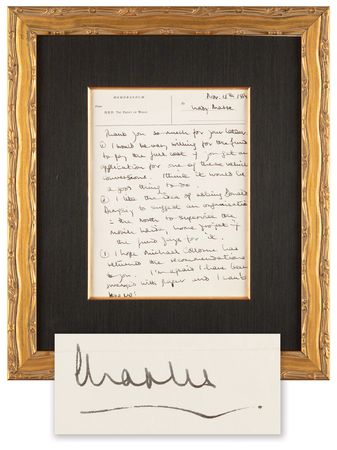 MEMORANDUM
Nov. 15th
From
To
H.R.H. The Prince of Wales
Thank you so much for your letter.
① I would be very willing for the fund
to pay the full cost if you get an
application for one of these vehicle
conversions. I think it would be
a good thing to do.
② I like the idea of asking
to suggest an organisation
in the North to supervise the
home project if
the fund pays for it.
③ I hope Michael Colborne has
returned the recommendations
to you. I'm afraid I have been
swamped with paper and I can't
Charles